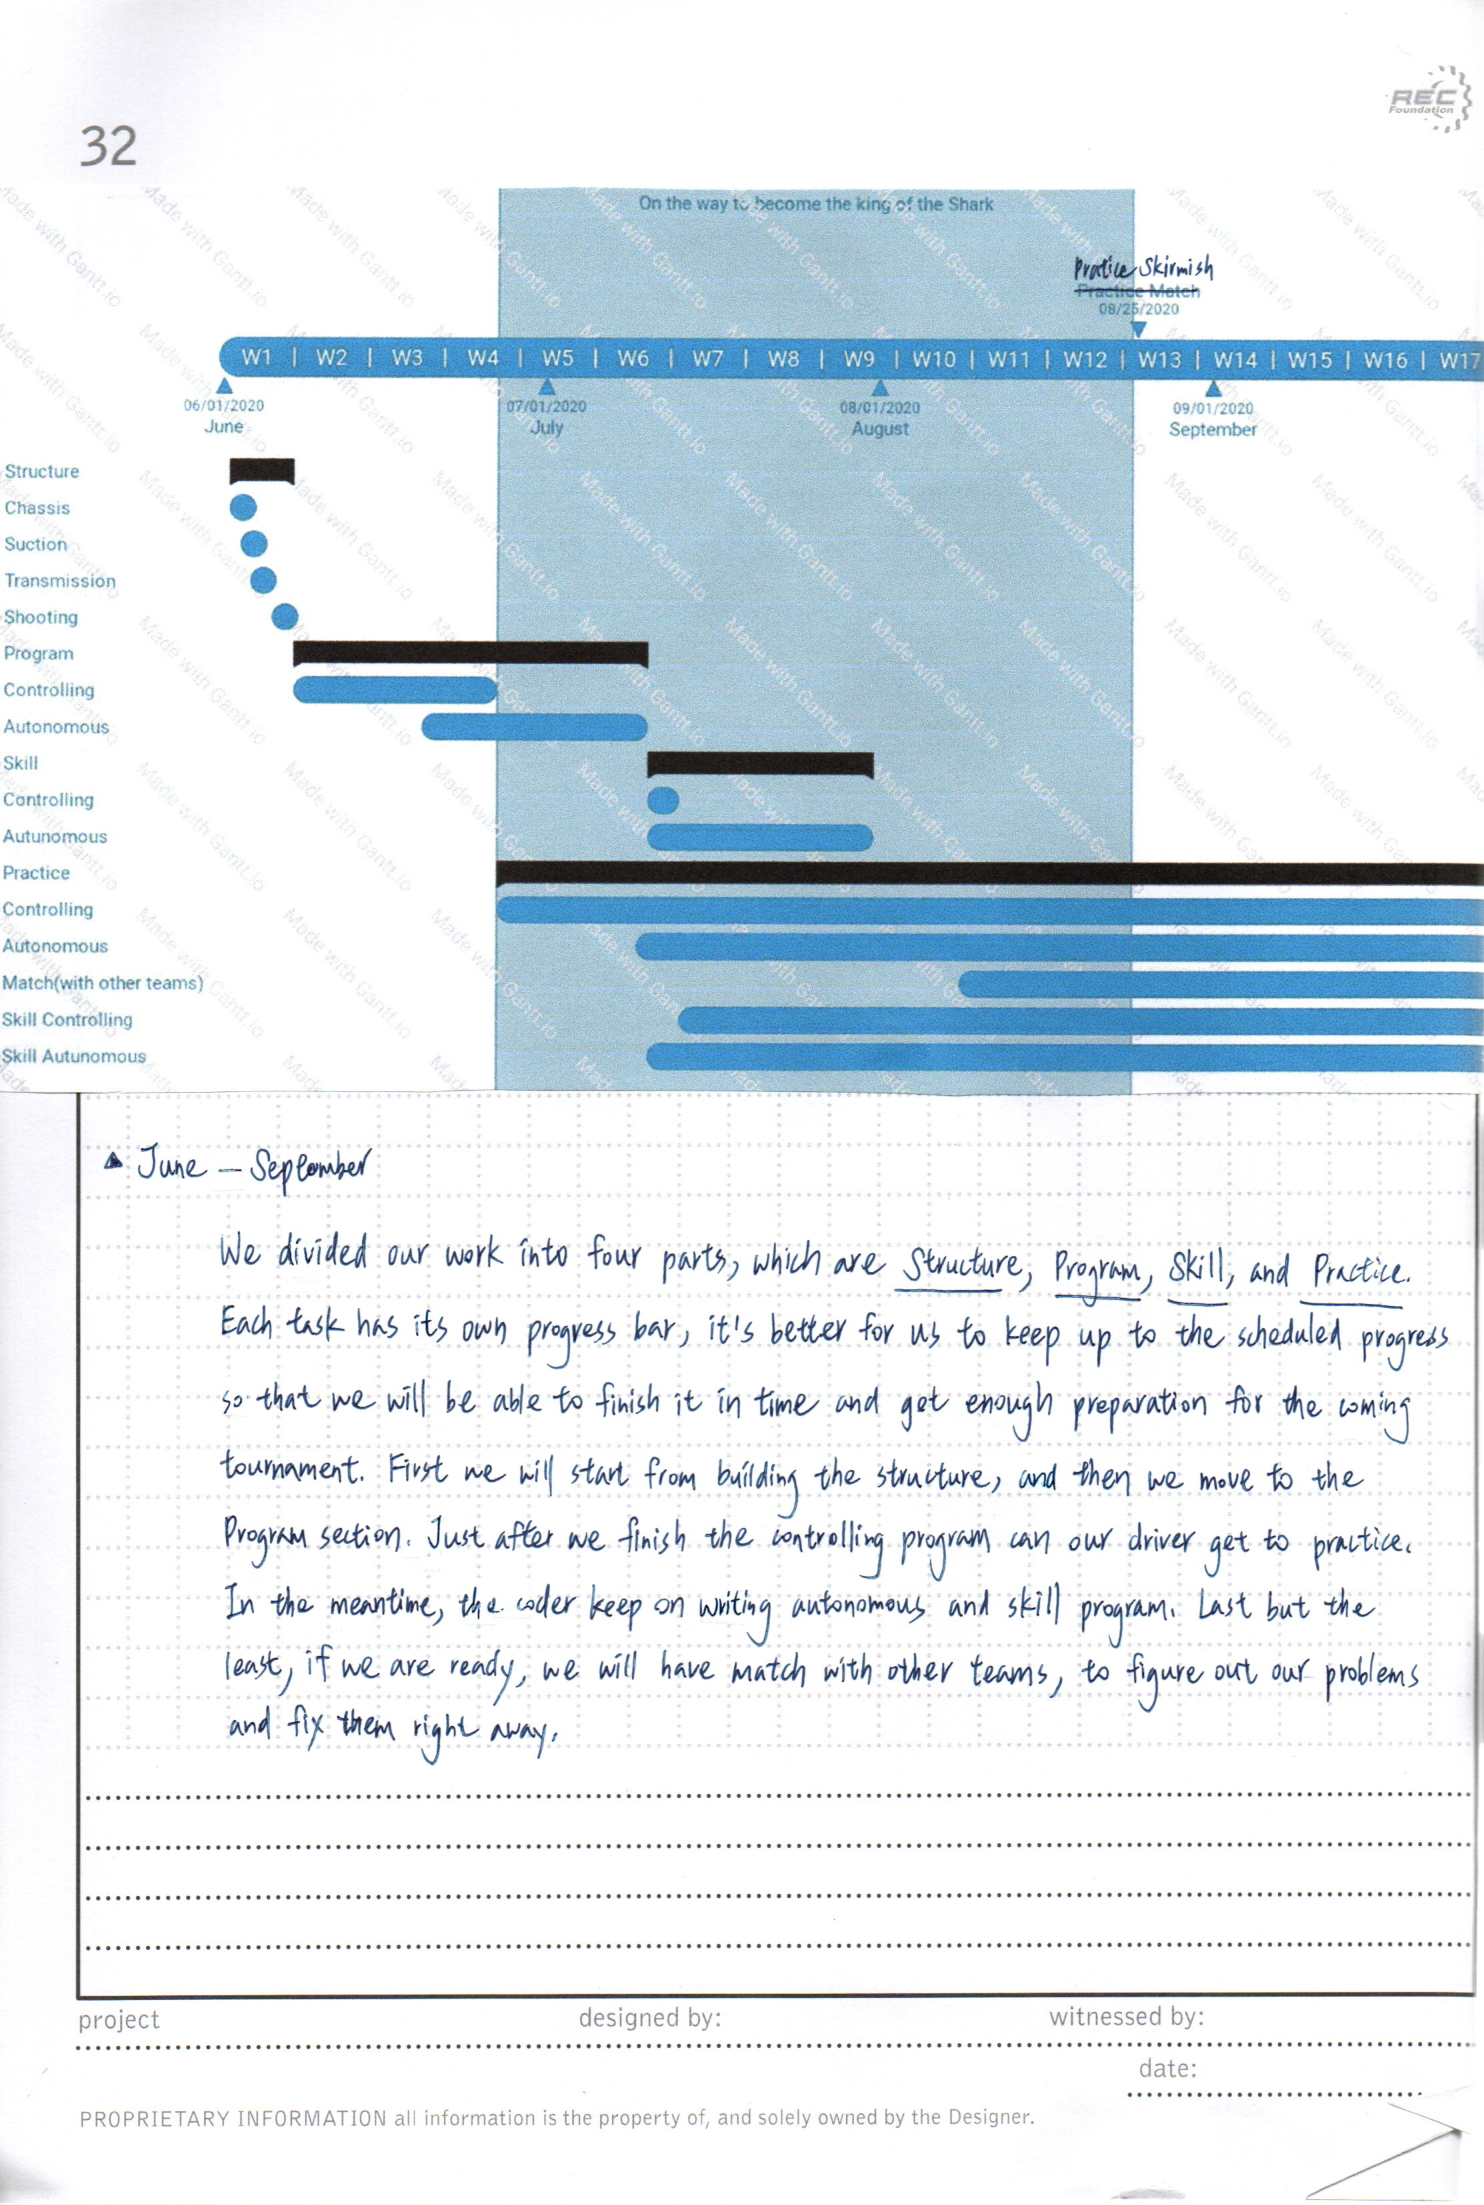 REC
Foundation
32
On the way to become the king of the Shark
Pratice Skirmish
Practice Match
08/25/2020
W1 | W2 | W3 | W4 | W5 | W6 | W7 | W8 | W9 | W10 | W11 | W12 | W13 | W14 | W15 | W16 | W17
06/01/2020 07/01/2020 08/01/2020 09/01/2020
June July August September
Structure
Chassis
Suction
Transmission
Shooting
Program
Controlling
Autonomous
Skill
Controlling
Autunomous
Practice
Controlling
Autonomous
Match(with other teams)
Skill Controlling
Skill Autunomous
Made with Gantt.io
▲ June – September
We divided our work into four parts, which are Structure, Program, Skill, and Practice.
Each task has its own progress bar, it's better for us to keep up to the scheduled progress
so that we will be able to finish it in time and get enough preparation for the coming
tournament. First we will start from building the structure, and then we move to the
Program section. Just after we finish the controlling program can our driver get to practice.
In the meantime, the coder keep on writing autonomous and skill program. Last but the
least, if we are ready, we will have match with other teams, to figure out our problems
and fix them right away.
project designed by: witnessed by:
date:
PROPRIETARY INFORMATION all information is the property of, and solely owned by the Designer.